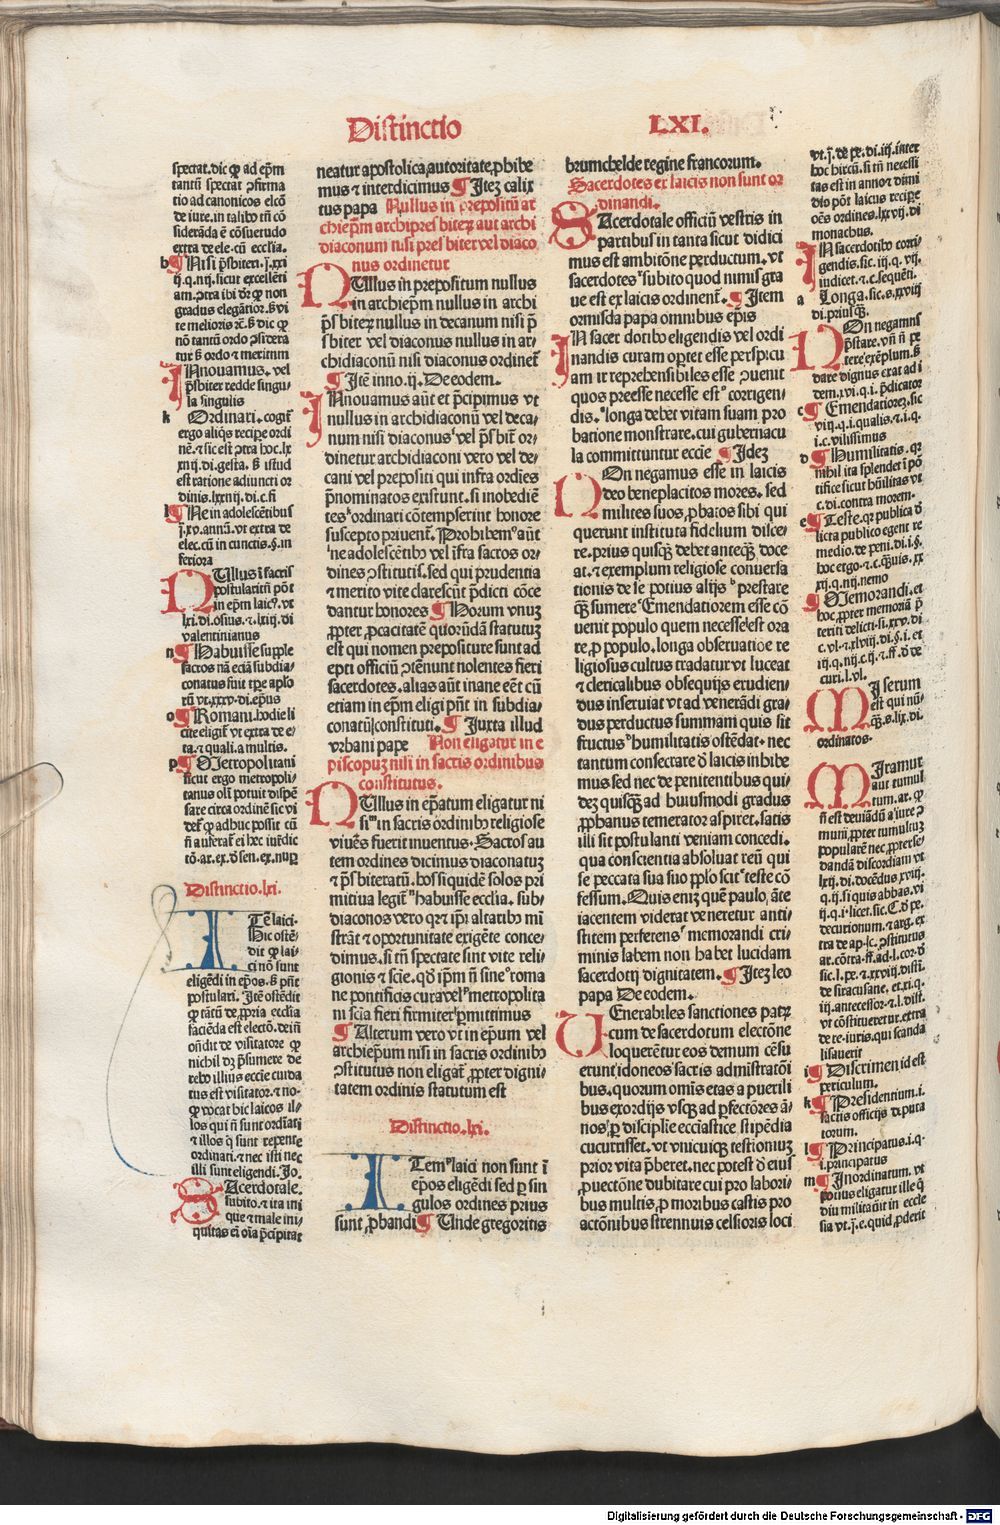 Distinctio LXI.
spectat. dic ꝙ ad ep̄m
tantū spectat ꝯfirma
tio ad canonicos elcō
de iure. in talibꝰ tn̄ cō
siderāda ē cōsuetudo
extra de ele. cū ecclia.
b ¶ Nisi p̄sbiteri. j. xxi
ij. q. nij. sicut excellēti
am. ꝯtra ibi dr̄ ꝙ non
gradus elegātior. s̄ vi
te melioris rc̄. s̄ dic ꝙ
nō tantū ordo ꝯsidera
tur s̄ ordo ⁊ meritum
INnouamus. vel
p̄sbiter redde singu-
la singulis
k Ordinari. cogit
ergo aliq̄s recipe ordi
nē. ⁊ sic est ꝯtra hoc. lx
xnij. di. gesta. s̄ istud
est ratione adiuncti or
dinis. lxxnij. di. c. fi
l ¶ Ne in adolescētibus
j. xv. annū. vt extra de
elec. cū in cunctis. §. in
feriora
NUllus ī sacris
postularitn̄ pōt
in ep̄m laicꝰ. vt
lxi. di. osius. ⁊. lxiij. di
valentinianus
n ¶ Habuisse supple
sacros nā eciā subdia-
conatus fuit tp̄e aplo
rū vt. xxxv. di. ep̄us
o ¶ Romani. hodie li
cite eligit̄ vt extra de e-
ta. ⁊ quali. a multis.
p ¶ Metropolitani
sicut ergo metropoli-
tanus oli potuit dispē
sare circa ordinē sic vi
det̄ ꝙ adhuc possit cū
n̄ auferat̄ ei hec iurēdic
tō. ar. ex. d̄ sen. ex. nuꝑ
Distinctio. lxi.
ITē laici.
Hic ostē-
dit ꝙ lai-
ci nō sunt
eligēdi in ep̄os. s̄ pn̄t
postulari. Itē ostēdit
ꝙ tātū de ꝓpria ecclia
faciēda est electō. dein̄
on̄dit de visitatore ꝙ
nichil dꝫ p̄sumere de
rebꝰ illius eccīe cuida
tus est visitator. ⁊ no-
ꝙ vocat hic laicos il-
los qui n̄ sunt ordiāti
⁊ illos q̄ sunt repente
ordinati. ⁊ nec isti nec
illi sunt eligendi. Jo.
SAcerdotale.
subito. ⁊ ita ini
que ⁊ male ini-
quitas ei oīa p̄cipitat
neatur apostolica autoritate ꝓhibe
mus ⁊ interdicimus ¶ Itez calix
tus papa Nullus in prepositū ar
chiep̄m archipresbiteꝝ aut archi
diaconum nisi presbiter vel diaco
nus ordinetur
NUllus in prepositum nullus
in archiep̄m nullus in archi
p̄sbiteꝝ nullus in decanum nisi p̄
sbiter vel diaconus nullus in ar-
chidiaconū nisi diaconus ordinet̄
¶ Itē inno. ij. De eodem.
INnouamus aūt et p̄cipimus vt
nullus in archidiaconū vel deca-
num nisi diaconus vel p̄sbit̄ or-
dinetur archidiaconi vero vel de-
cani vel prepositi qui infra ordīes
p̄nominatos existunt. si inobediē
tes ordinari cōtempserint honore
suscepto priuent̄. Prohibemꝰ aūt
ne adolescētibꝰ vel īfra sacros or-
dines ꝯstitutis. sed qui prudentia
⁊ merito vite clarescūt p̄dicti cōce
dantur honores ¶ Horum vnuꝫ
ꝓpter ꝓcacitatē quorūdā statutuꝫ
est qui nomen prepositure sunt ad
epti officiū ꝯtēnunt nolentes fieri
sacerdotes. alias aūt inane eēt cū
etiam in ep̄m eligi pn̄t in subdia-
conatū ꝯstituti. ¶ Juxta illud
vrbani pape Non eligatur in e
piscopuꝫ nisi in sacris ordinibus
constitutus.
NUllus in ep̄atum eligatur ni
si in sacris ordinibꝰ religiose
viuēs fuerit inuentus. Sacros au
tem ordines dicimus diaconatuꝫ
⁊ p̄sbiteratū. hos siquidē solos pri
mitiua legit̄ habuisse ecclia. sub-
diaconos vero qꝛ ⁊ ip̄i altaribꝰ mi
strāt ⁊ oportunitate exigēte conce-
dimus. si tn̄ spectate sint vite reli-
gionis ⁊ scīe. qd̄ ip̄m n̄ sine roma
ne pontificis cura vel metropolita
ni scia fieri firmiter ꝑmittimus
¶ Alterum vero vt in ep̄um vel
archiep̄um nisi in sacris ordinibꝰ
ꝯstitutus non eligat̄ ꝓpter digni-
tatem ordinis statutum est
Distinctio. lxi.
ITem laici non sunt ī
ep̄os eligēdi sed ꝑ sin
gulos ordines prius
sunt ꝓbandi ¶ Unde gregorius
brunichelde regine francorum.
Sacerdotes ex laicis non sunt or
dinandi.
SAcerdotale officiū vestris in
partibus in tanta sicut didici
mus est ambitōne perductum. vt
sacerdotes subito quod nimis gra
ue est ex laicis ordinent̄. ¶ Item
ormisda papa omnibus ep̄is
IN sacerdotibꝰ eligendis vel ordi
nandis curam oꝑtet esse perspicu
am irreprehensibiles esse ꝯuenit
quos preesse necesse est corrigen-
dis. longa debet vitam suam pro
batione monstrare. cui gubernacu
la committuntur eccīe ¶ Idez
NOn negamus esse in laicis
deo beneplacitos mores. sed
milites suos ꝓbatos sibi qui
querunt instituta fidelium disce-
re. prius quisqꝫ debet anteqꝫ doce
at. ⁊ exemplum religiose conuersa
tionis de se potius alijs prestare
qꝫ sumere Emendatiorem esse cō
uenit populo quem necesse est ora
re ꝓ populo. longa obseruatiōe re
ligiosus cultus tradatur vt luceat
⁊ clericalibus obsequijs erudien-
dus inseruiat vt ad venerādi gra-
dus perductus summani quis sit
fructus humilitatis ostēdat. nec
tantum consecrare d̄ laicis inhibe
mus sed nec de penitentibus qui-
dez quisqꝫ ad huiusmodi gradus
ꝓphanus temerator aspiret. satis
illi sit postulanti veniam concedi.
qua conscientia absoluat reū qui
se peccata sua suo pplo scit teste cō
fessum. Quis eniꝫ quē paulo ante
iacentem viderat veneretur anti-
stitem perferens memorandi cri-
minis labem non habet lucidam
sacerdotij dignitatem. ¶ Itez leo
papa De eodem.
UEnerabiles sanctiones patꝝ
cum de sacerdotum electōne
loquerētur eos demum cēsu
erunt idoneos sacris admistratōi
bus. quorum omis etas a puerili
bus exordijs vsqꝫ ad ꝑfectōres ā-
nos ꝑ disciplīe eccīastice stipēdia
cucurrisset. vt vnicuiqꝫ testioniuꝫ
prior vita p̄beret. nec potest d̄ eius
ꝓuectōne dubitare cui pro labori-
bus multis ꝓ moribus castis pro
actōnibus strennuis celsioris loci
vt. j. de pe. di. iij. inter
hoc hircū. si tn̄ necessi
tas est in anno ⁊ dimi
dio pōt laicus recipe
oēs ordines. lxxvij. di
monachus.
IN sacerdotibꝰ corri-
gendis. sic. iij. q. vij.
iudicet. ⁊. c. sequēti.
a Longa. sic. s. xxviij
di. priusqꝫ.
NOn negamus
p̄stare. vn̄ n̄ pe
tere exēplum. s̄
dare dignus erat ad i
dem. xvi. q. i. p̄dicator
c ¶ Emendatiorez. sic
viij. q. i. qualis. ⁊. i. q.
i. c. vilissimus
d ¶ Humilitatis. qꝛ
nihil ita splendet ī pō
tifice sicut hūilitas vt
s. di. contra morem.
e ¶ Teste. qꝛ publica d̄
licta publico egent re
medio. de peni. di. i. §.
hoc ergo. ⁊. c. q̄uis. xx
xij. q. nij. nemo
¶ Memorandi. et
hoc ꝓpter memoriā p̄
teriti delicti. si. xxv. di
c. vl. ⁊ xlviij. di. §. i. et
iij. q. nij. c. ij. ⁊ ff. d̄ de
curi. l. vl.
MIserum
est qui nū-
qꝫ. s. lix. di.
ordinatos.
MIramur
aut tumul
tum. ar. ꝙ
n̄ est deuiādū a iure ꝯ
muni ꝓpter tumultuꝫ
popularē nec ꝓpter se
dandā discordiam vt
lxij. di. docēdus. xviij.
q. ij. si quis abbas. vi
ij. q. i. licet. sic. C. d̄ pe.
decurionum. ⁊ arg. ex
tra de ap. c. ꝯstitutus
ar. cōtra. ff. ad. l. cor. d̄
sic. l. pe. ⁊ xxviij. disti.
de siracusane. et. xi. q.
iij. antecessor. ⁊. l. dist.
vt cōstitueretur. extra
de re-iuris. qui scanda
lisauerit
i ¶ Discrimen id est
periculum.
k ¶ Presidentium. i.
sacris officijs deputa
torum.
l ¶ Principatus. i. q.
i. principatus
m ¶ Inordinatum. vt
potius eligatur ille q̄
diu militauit in eccle
sia vt. j. e. quid ꝓderit
Digitalisierung gefördert durch die Deutsche Forschungsgemeinschaft - DFG